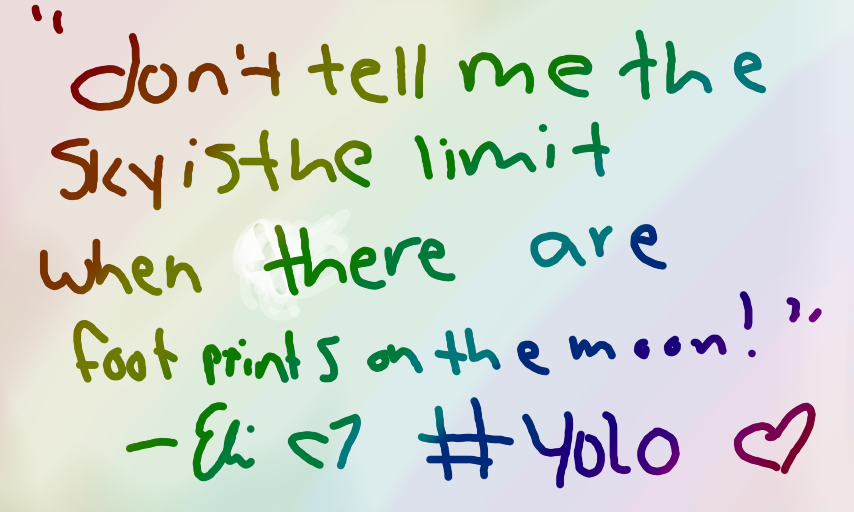 "don't tell me the
sky is the limit
when there are
foot prints on the moon!"
- Eli <7 #Yolo ♡